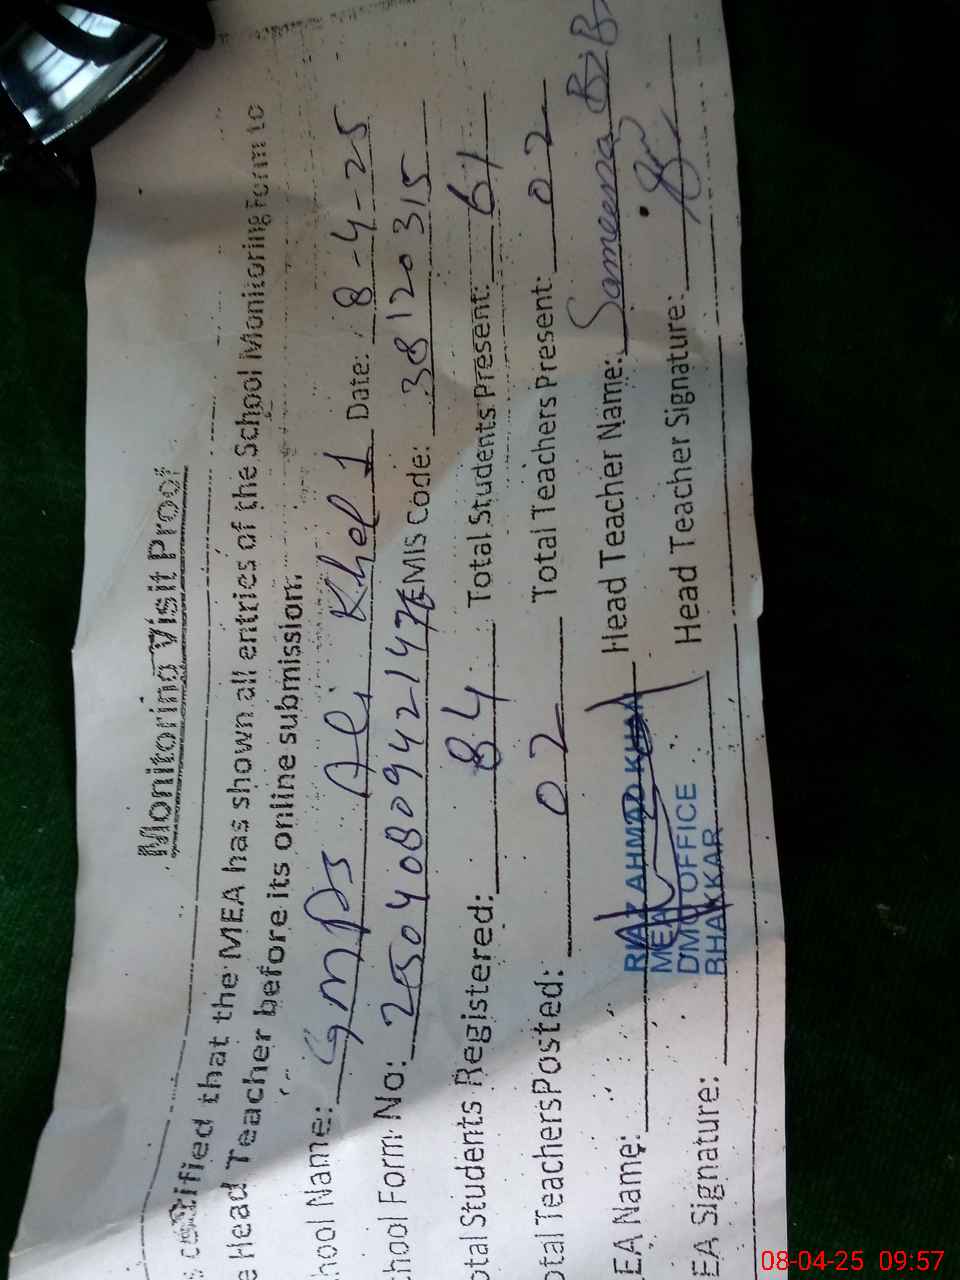 Monitoring Visit Proof
certified that the MEA has shown all entries of the School Monitoring Form to
e Head Teacher before its online submission.
hool Name: GMPS Ali Khel 1 Date: 8-4-25
chool Form No: EMIS Code: 38120315
otal Students Registered: 84 Total Students Present: 61
otal Teachers Posted: 02 Total Teachers Present: 02
EA Name: RIAZ AHMAD KHAN Head Teacher Name: Sameena BiBi
MEA
DMO OFFICE
BHAKKAR
EA Signature: Head Teacher Signature:
08-04-25 09:57